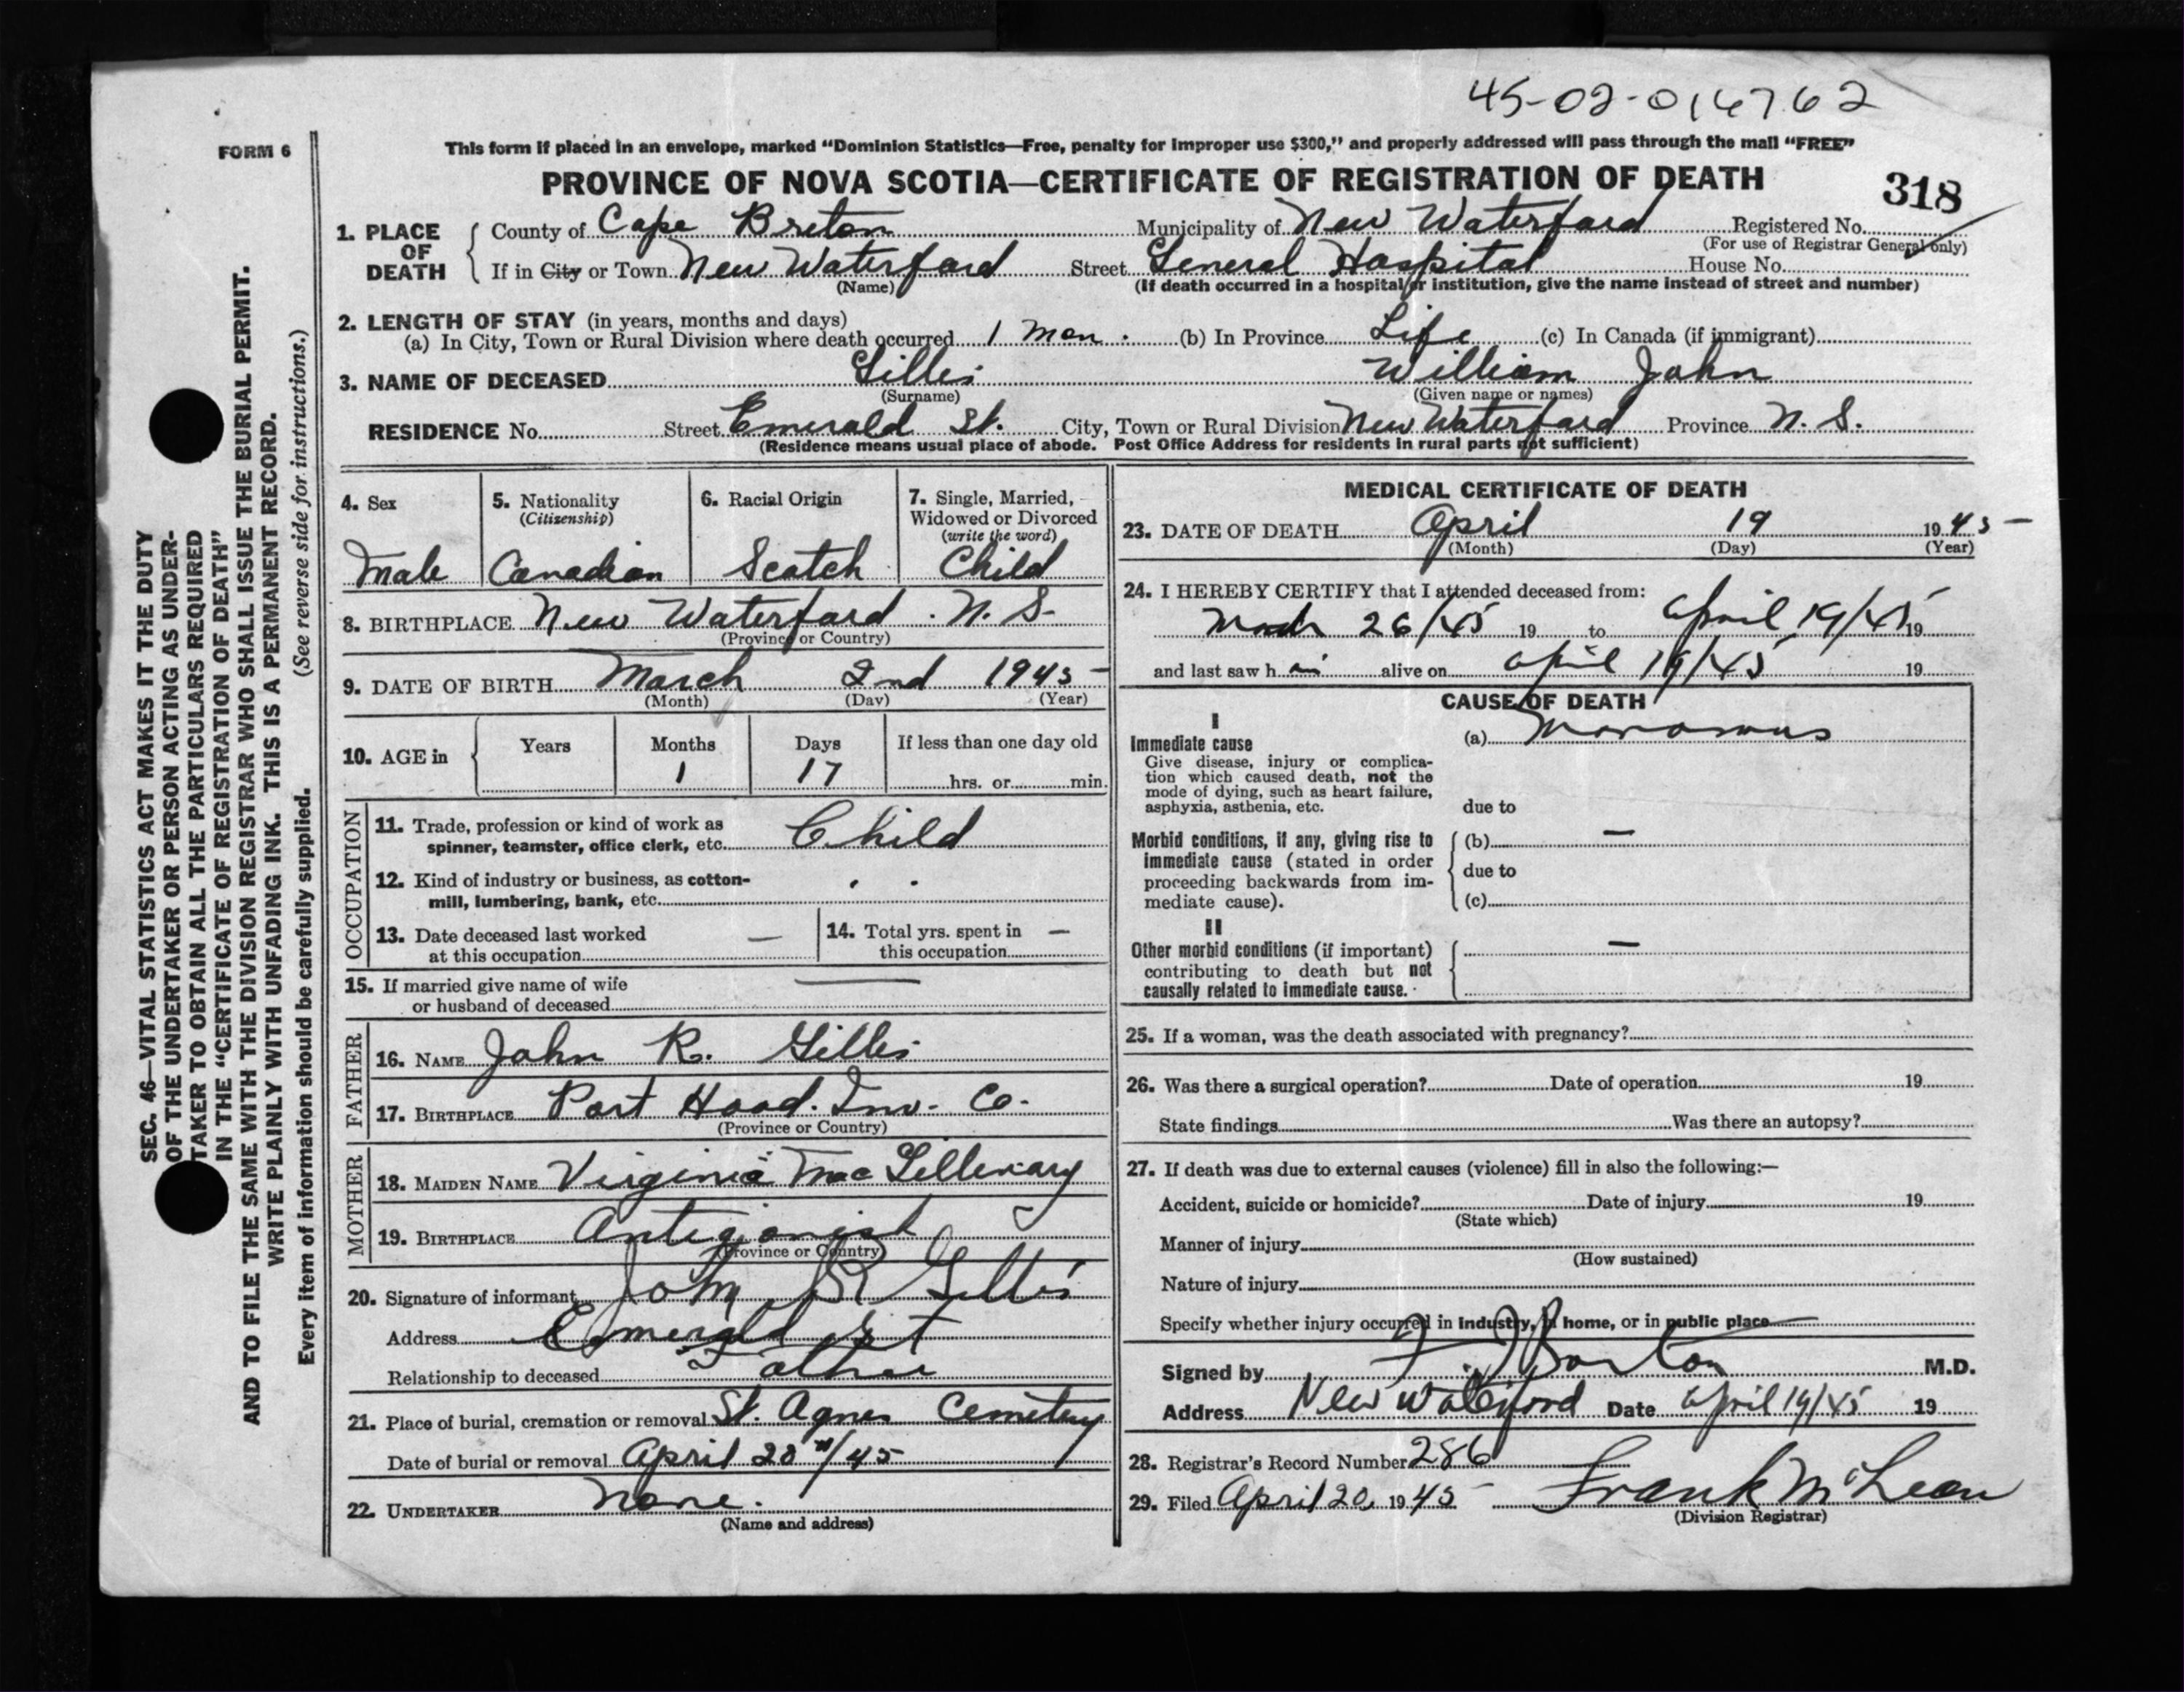 45-02-014762
FORM 6
This form if placed in an envelope, marked "Dominion Statistics—Free, penalty for improper use $300," and properly addressed will pass through the mail "FREE"
PROVINCE OF NOVA SCOTIA—CERTIFICATE OF REGISTRATION OF DEATH
318
1. PLACE OF DEATH County of Cape Breton Municipality of New Waterford Registered No.
(For use of Registrar General only)
If in City or Town New Waterford Street General Hospital House No.
(Name) (If death occurred in a hospital or institution, give the name instead of street and number)
2. LENGTH OF STAY (in years, months and days)
(a) In City, Town or Rural Division where death occurred 1 Mon. (b) In Province Life (c) In Canada (if immigrant)
3. NAME OF DECEASED Gillis William John
(Surname) (Given name or names)
RESIDENCE No. Street Emerald St. City, Town or Rural Division New Waterford Province N. S.
(Residence means usual place of abode. Post Office Address for residents in rural parts not sufficient)
4. Sex 5. Nationality 6. Racial Origin 7. Single, Married,
(Citizenship) Widowed or Divorced
(write the word)
Male Canadian Scotch Child
8. BIRTHPLACE New Waterford. N. S.
(Province or Country)
9. DATE OF BIRTH March 2nd 1945
(Month) (Day) (Year)
10. AGE in Years Months Days If less than one day old
1 17 hrs. or min.
OCCUPATION
11. Trade, profession or kind of work as
spinner, teamster, office clerk, etc. Child
12. Kind of industry or business, as cotton-
mill, lumbering, bank, etc. . .
13. Date deceased last worked — 14. Total yrs. spent in —
at this occupation this occupation
15. If married give name of wife —
or husband of deceased
FATHER
16. NAME John R. Gillis
17. BIRTHPLACE Port Hood. Inv. Co.
(Province or Country)
MOTHER
18. MAIDEN NAME Virginia Mac Gillivary
19. BIRTHPLACE Antigonish
(Province or Country)
20. Signature of informant John R Gillis
Address Emerald St
Relationship to deceased Father
21. Place of burial, cremation or removal St. Agnes Cemetery
Date of burial or removal April 20th/45
22. UNDERTAKER None.
(Name and address)
MEDICAL CERTIFICATE OF DEATH
23. DATE OF DEATH April 19 1945
(Month) (Day) (Year)
24. I HEREBY CERTIFY that I attended deceased from:
March 26/45 19 to April 19/45 19
and last saw h im alive on April 19/45 19
CAUSE OF DEATH
I
Immediate cause (a) Marasmus
Give disease, injury or complica-
tion which caused death, not the
mode of dying, such as heart failure,
asphyxia, asthenia, etc. due to
Morbid conditions, if any, giving rise to (b) —
immediate cause (stated in order
proceeding backwards from im- due to
mediate cause). (c)
II
Other morbid conditions (if important) —
contributing to death but not
causally related to immediate cause.
25. If a woman, was the death associated with pregnancy?
26. Was there a surgical operation? Date of operation 19
State findings Was there an autopsy?
27. If death was due to external causes (violence) fill in also the following:—
Accident, suicide or homicide? Date of injury 19
(State which)
Manner of injury
(How sustained)
Nature of injury
Specify whether injury occurred in industry, in home, or in public place
Signed by M.D.
Address New Waterford Date April 19/45 19
28. Registrar's Record Number 286
29. Filed April 20, 1945 Frank McLean
(Division Registrar)
SEC. 46—VITAL STATISTICS ACT MAKES IT THE DUTY
OF THE UNDERTAKER OR PERSON ACTING AS UNDER-
TAKER TO OBTAIN ALL THE PARTICULARS REQUIRED
IN THE "CERTIFICATE OF REGISTRATION OF DEATH"
AND TO FILE THE SAME WITH THE DIVISION REGISTRAR WHO SHALL ISSUE THE BURIAL PERMIT.
WRITE PLAINLY WITH UNFADING INK. THIS IS A PERMANENT RECORD.
Every item of information should be carefully supplied. (See reverse side for instructions.)